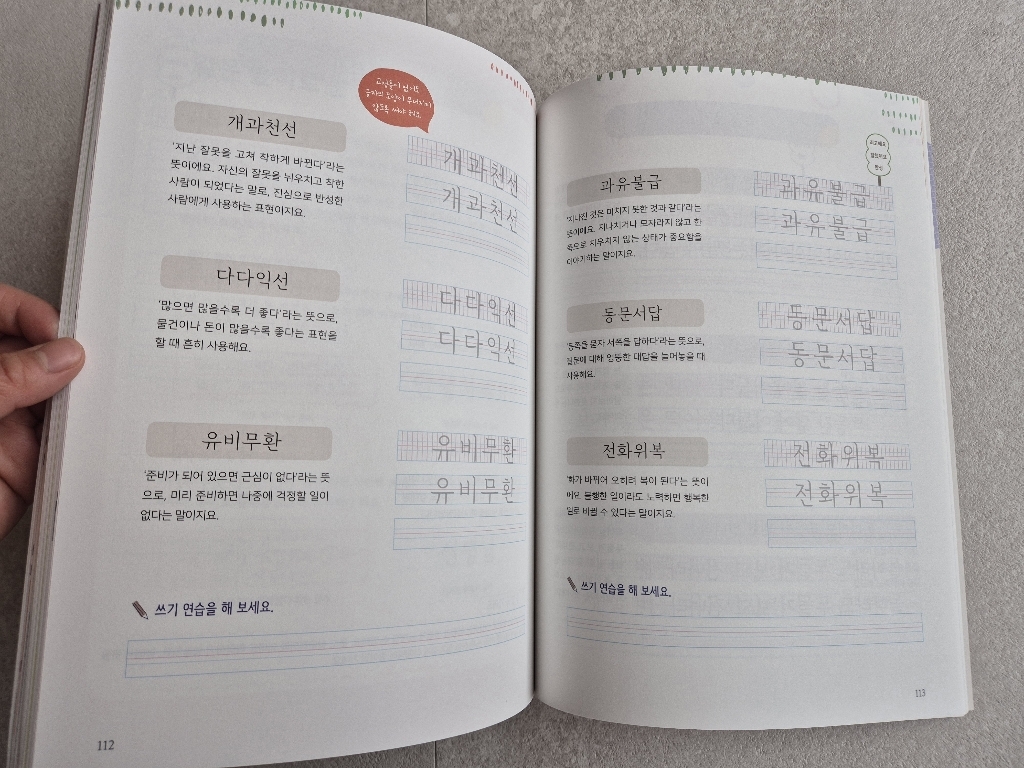 개과천선
'지난 잘못을 고쳐 착하게 바뀐다'라는
뜻이에요. 자신의 잘못을 뉘우치고 착한
사람이 되었다는 말로, 진심으로 반성한
사람에게 사용하는 표현이지요.
개과천선
개과천선
다다익선
'많으면 많을수록 더 좋다'라는 뜻으로,
물건이나 돈이 많을수록 좋다는 표현을
할 때 흔히 사용해요.
다다익선
다다익선
유비무환
'준비가 되어 있으면 근심이 없다'라는 뜻
으로, 미리 준비하면 나중에 걱정할 일이
없다는 말이지요.
유비무환
유비무환
쓰기 연습을 해 보세요.
112
과유불급
'지나친 것은 미치지 못한 것과 같다'라는
뜻이에요. 지나치거나 모자라지 않고 한
쪽으로 치우치지 않는 상태가 중요함을
이야기하는 말이지요.
과유불급
과유불급
동문서답
'동쪽을 묻자 서쪽을 답하다'라는 뜻으로,
질문에 대해 엉뚱한 대답을 늘어놓을 때
사용해요.
동문서답
동문서답
전화위복
'화가 바뀌어 오히려 복이 된다'는 뜻이
에요. 불행한 일이라도 노력하면 행복한
일로 바뀔 수 있다는 말이지요.
전화위복
전화위복
쓰기 연습을 해 보세요.
113